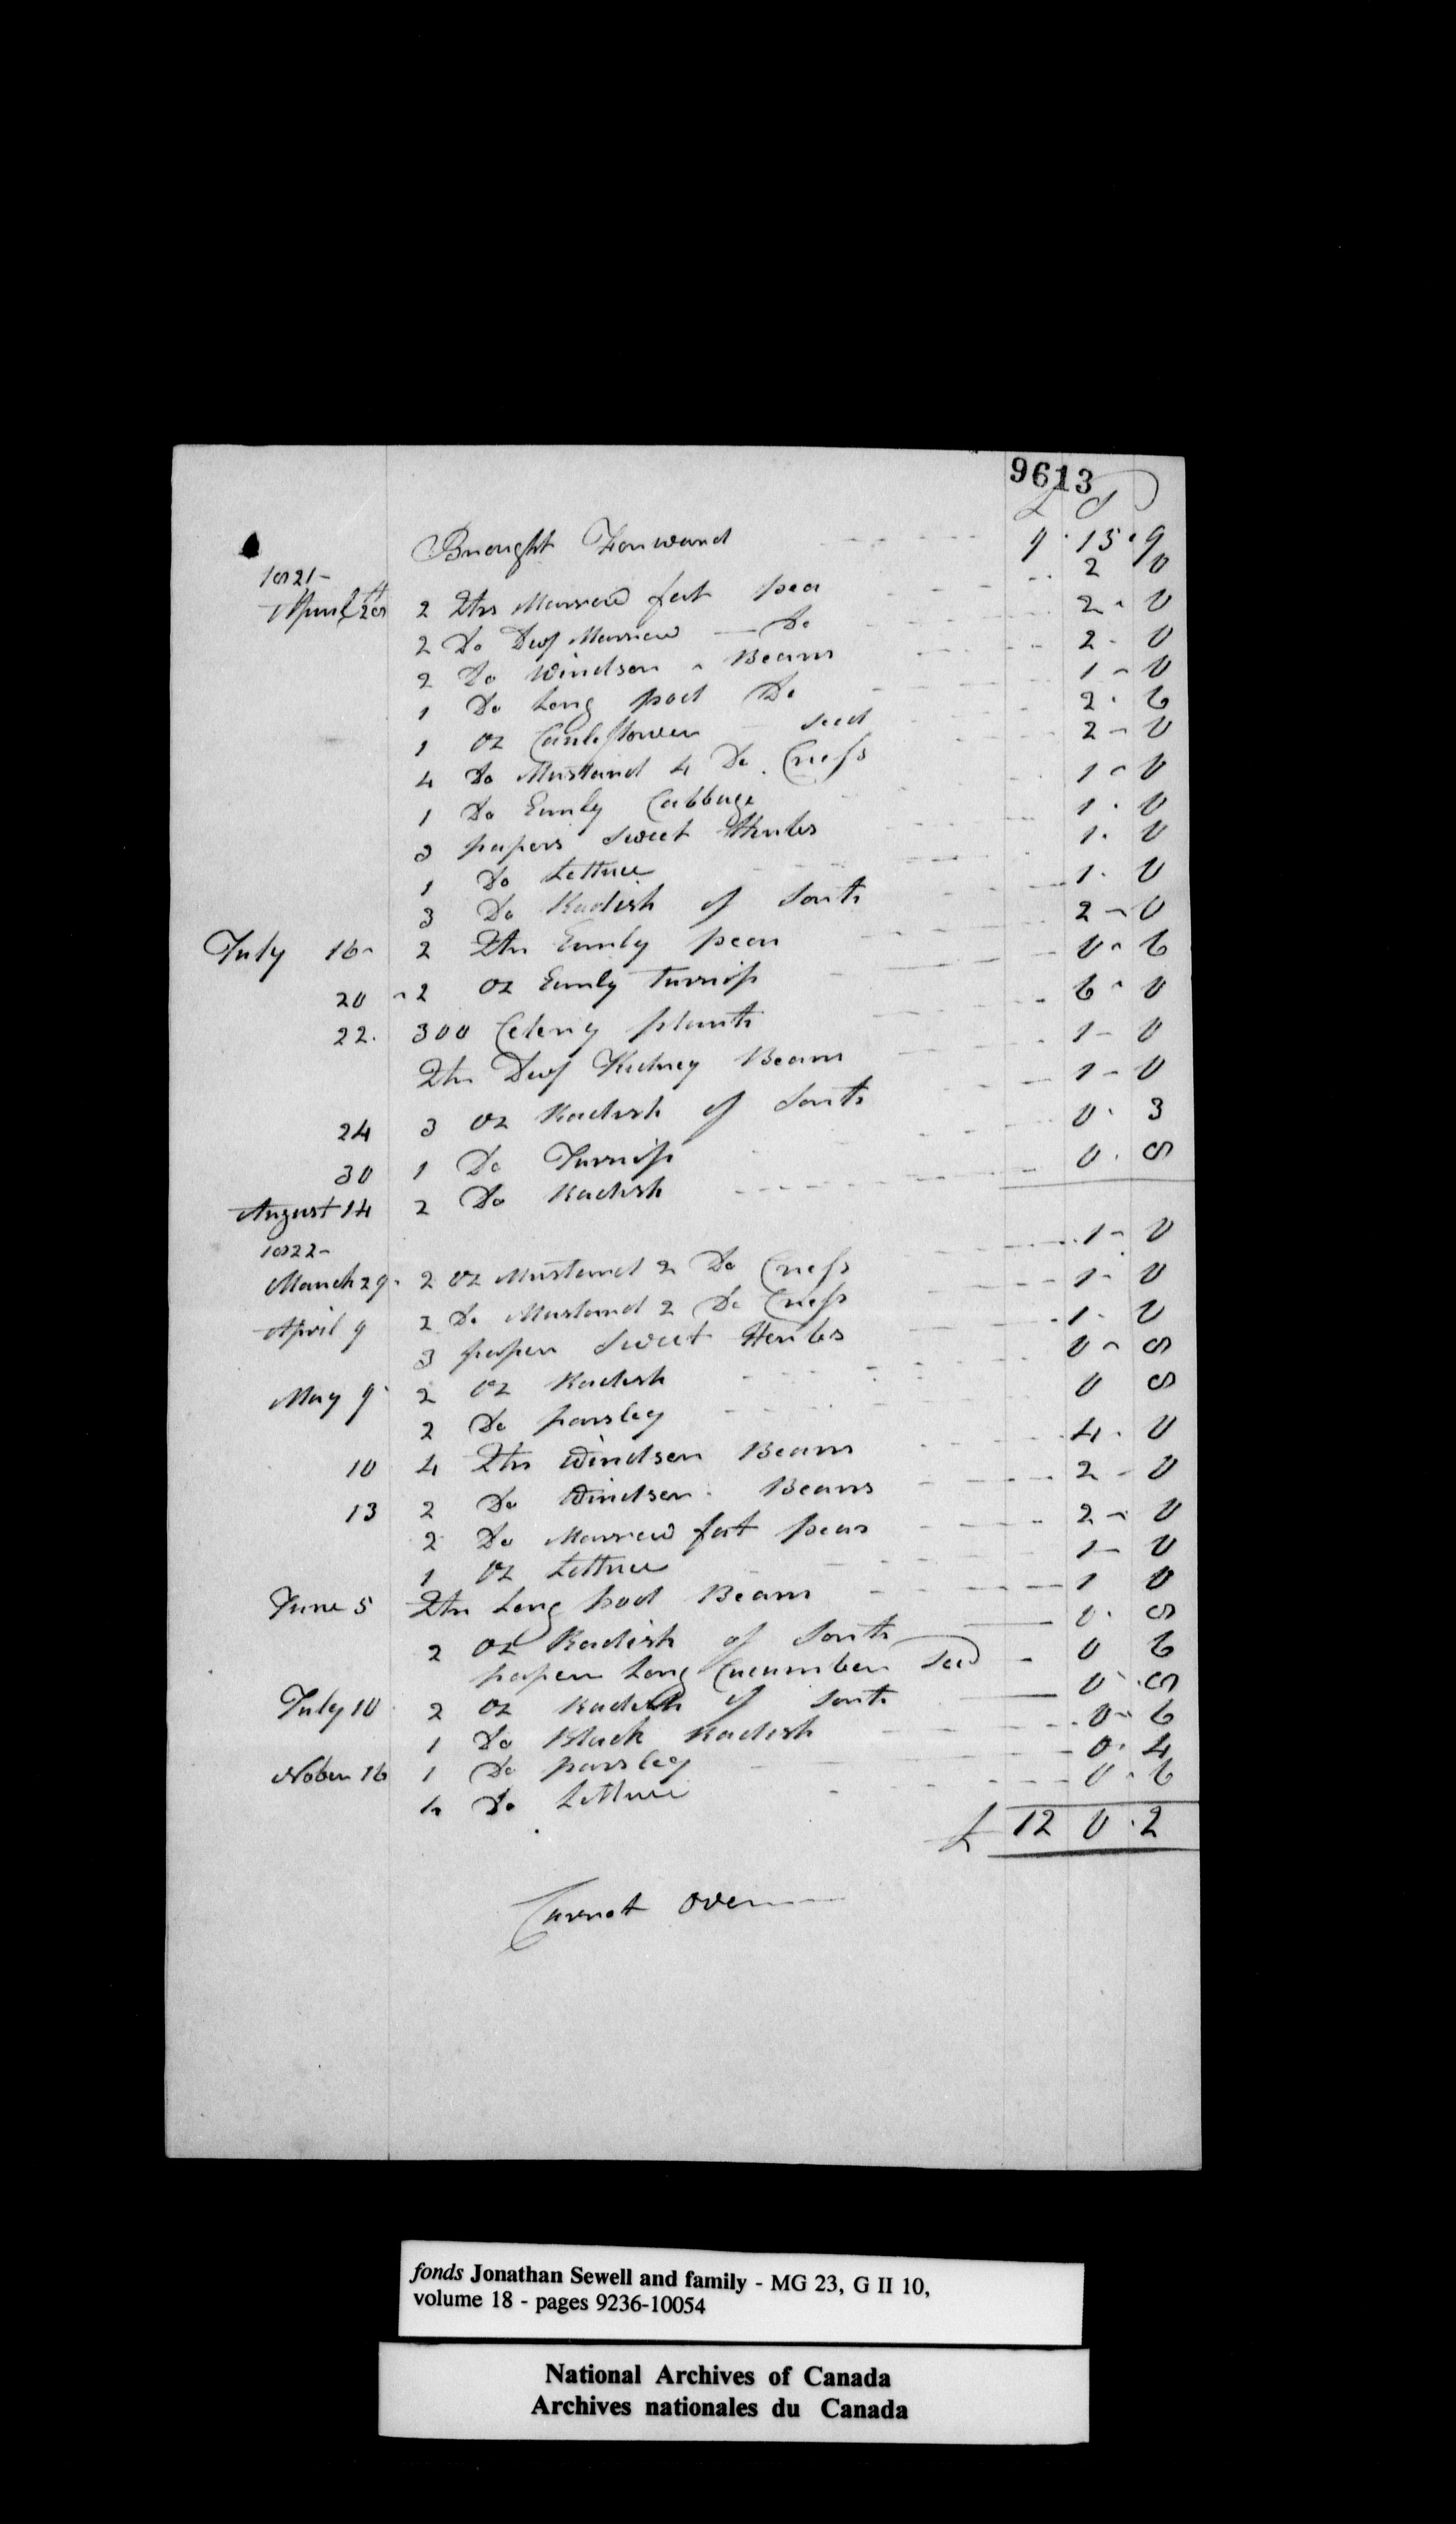 9613
£ S D
Brought Forward 9 · 15 · 9
1821-
April 28th 2 Qts Marrow fat pea 2 0
2 Do Dwf Marrow — Do 2 - 0
2 Do Windsor - Beans 2 - 0
1 Do Long pod Do 1 - 0
1 oz Cauleflower seed 2 · 6
4 Do Mustard 4 Do Cress 2 - 0
1 Do Early Cabbage 1 - 0
3 papers Sweet Herbs 1 · 0
1 Do Lettuce 1 · 0
3 Do Radish of Sorts 1 · 0
July 16 - 2 Qts Early peas 2 - 0
20 - 2 oz Early Turnip 0 - 6
22 · 300 Celery plants 6 - 0
Qts Dwf Kidney Beans 1 - 0
24 3 oz Radish of Sorts 1 - 0
30 1 Do Turnip 0 · 3
August 14 2 Do Radish 0 · 8
1822-
March 29 · 2 oz Mustard 2 Do Cress 1 - 0
April 9 2 Do Mustard 2 Do Cress 1 - 0
3 paper Sweet Herbs 1 · 0
May 9 · 2 oz Radish 0 - 8
2 Do parsley 0 8
10 4 Qts Windsor Beans 4 · 0
13 2 Do Windsor · Beans 2 - 0
2 Do Marrow fat peas 2 - 0
1 oz Lettuce 1 - 0
June 5 Qts Long pod Beans 1 0
2 oz Radish of Sorts 0 · 8
paper Long Cucumber Seed - 0 6
July 10 2 oz Radish of Sorts 0 · 8
1 Do Black Radish 0 - 6
Nober 16 1 Do parsley 0 · 4
Do Lettuce 0 - 6
£ 12 0 · 2
Carried over
fonds Jonathan Sewell and family - MG 23, G II 10,
volume 18 - pages 9236-10054
National Archives of Canada
Archives nationales du Canada